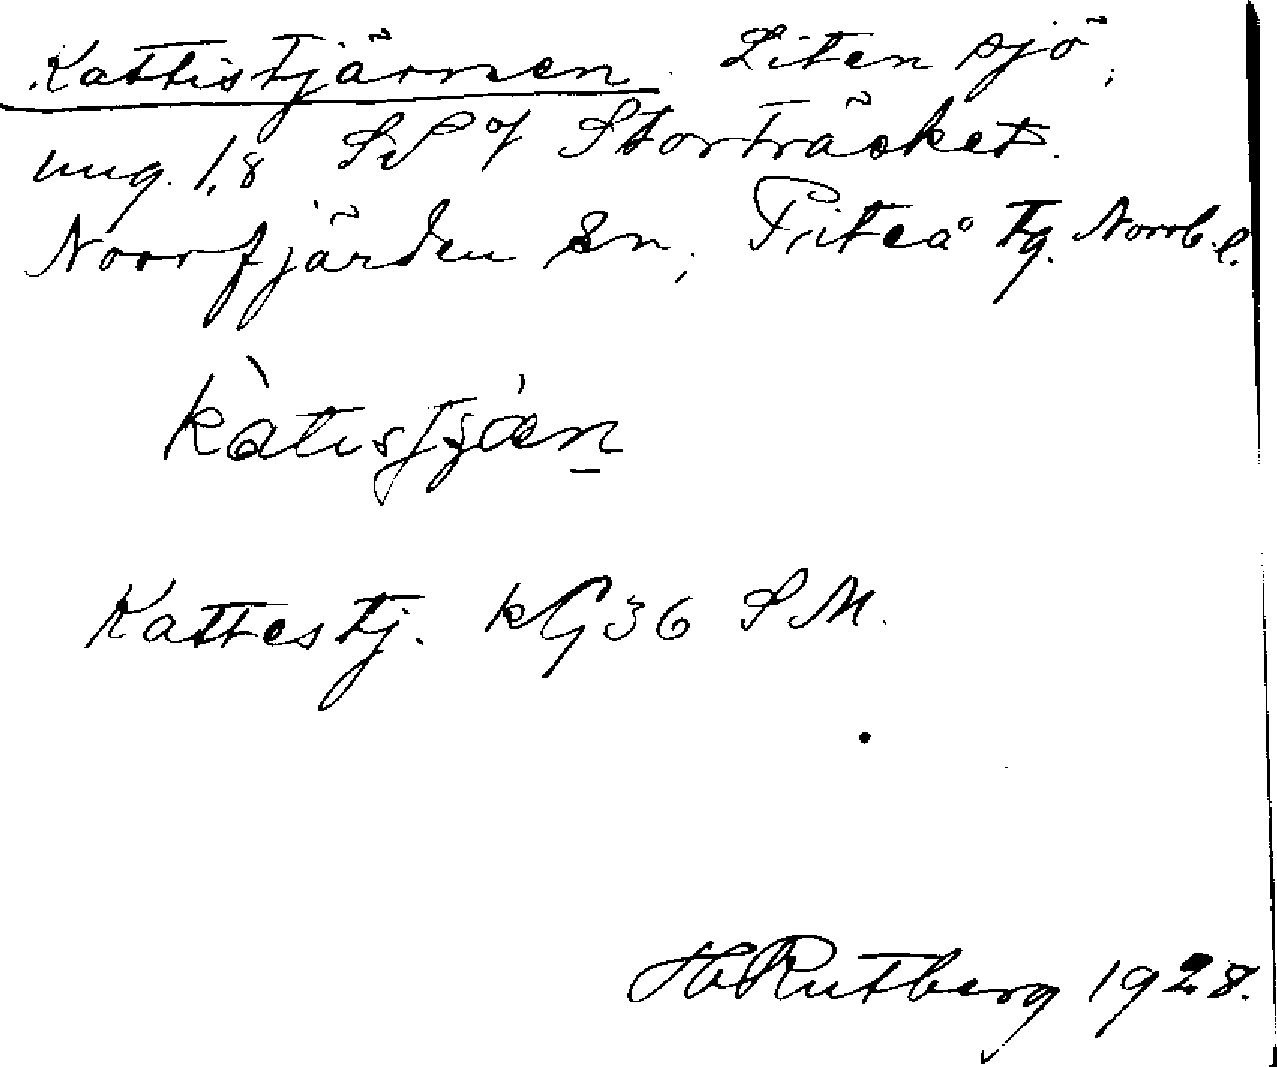 Kattistjärnen. Liten sjö,
ung. 1,8 SV of Storträsket.
Norrfjärden sn, Piteå tg. Norrb. l.
kàtistjǽn
Kattestj. kG 36 SM.
HRutberg 1928.